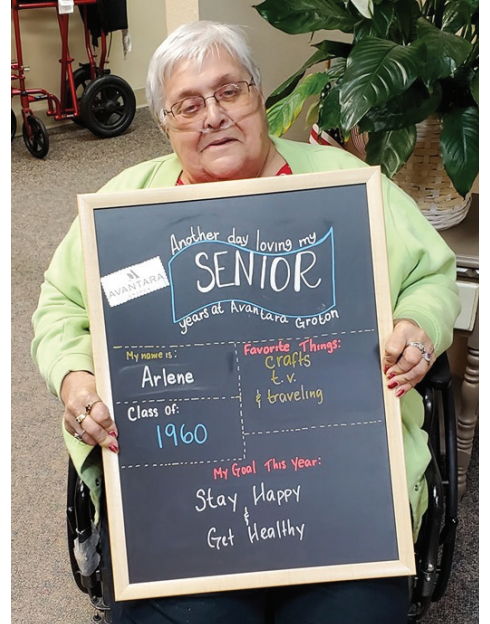 Another day loving my
SENIOR
years at Avantara Groton
AVANTARA
My name is:
Arlene
Class of:
1960
Favorite Things:
Crafts
t.v.
& traveling
My Goal This Year:
Stay Happy
&
Get Healthy